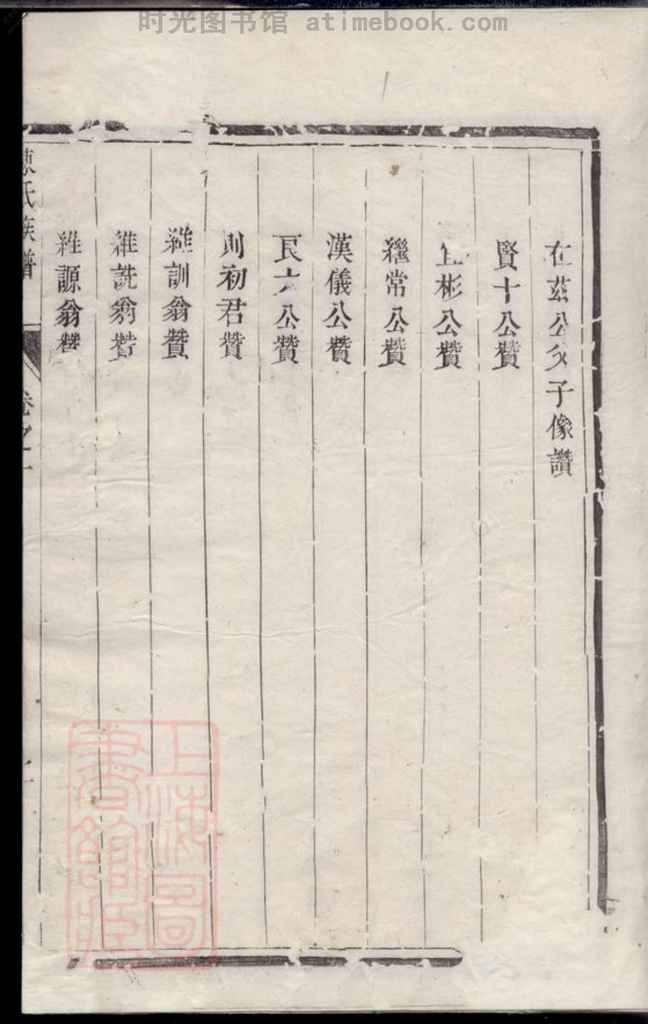 时光图书馆 atimebook.com
在茲公父子像讚
賢十公贊
宜彬公贊
繼常公贊
漢儀公贊
良六公贊
則初君贊
維訓翁贊
維詵翁贊
維源翁贊
氏族譜
卷之
上海圖書館藏